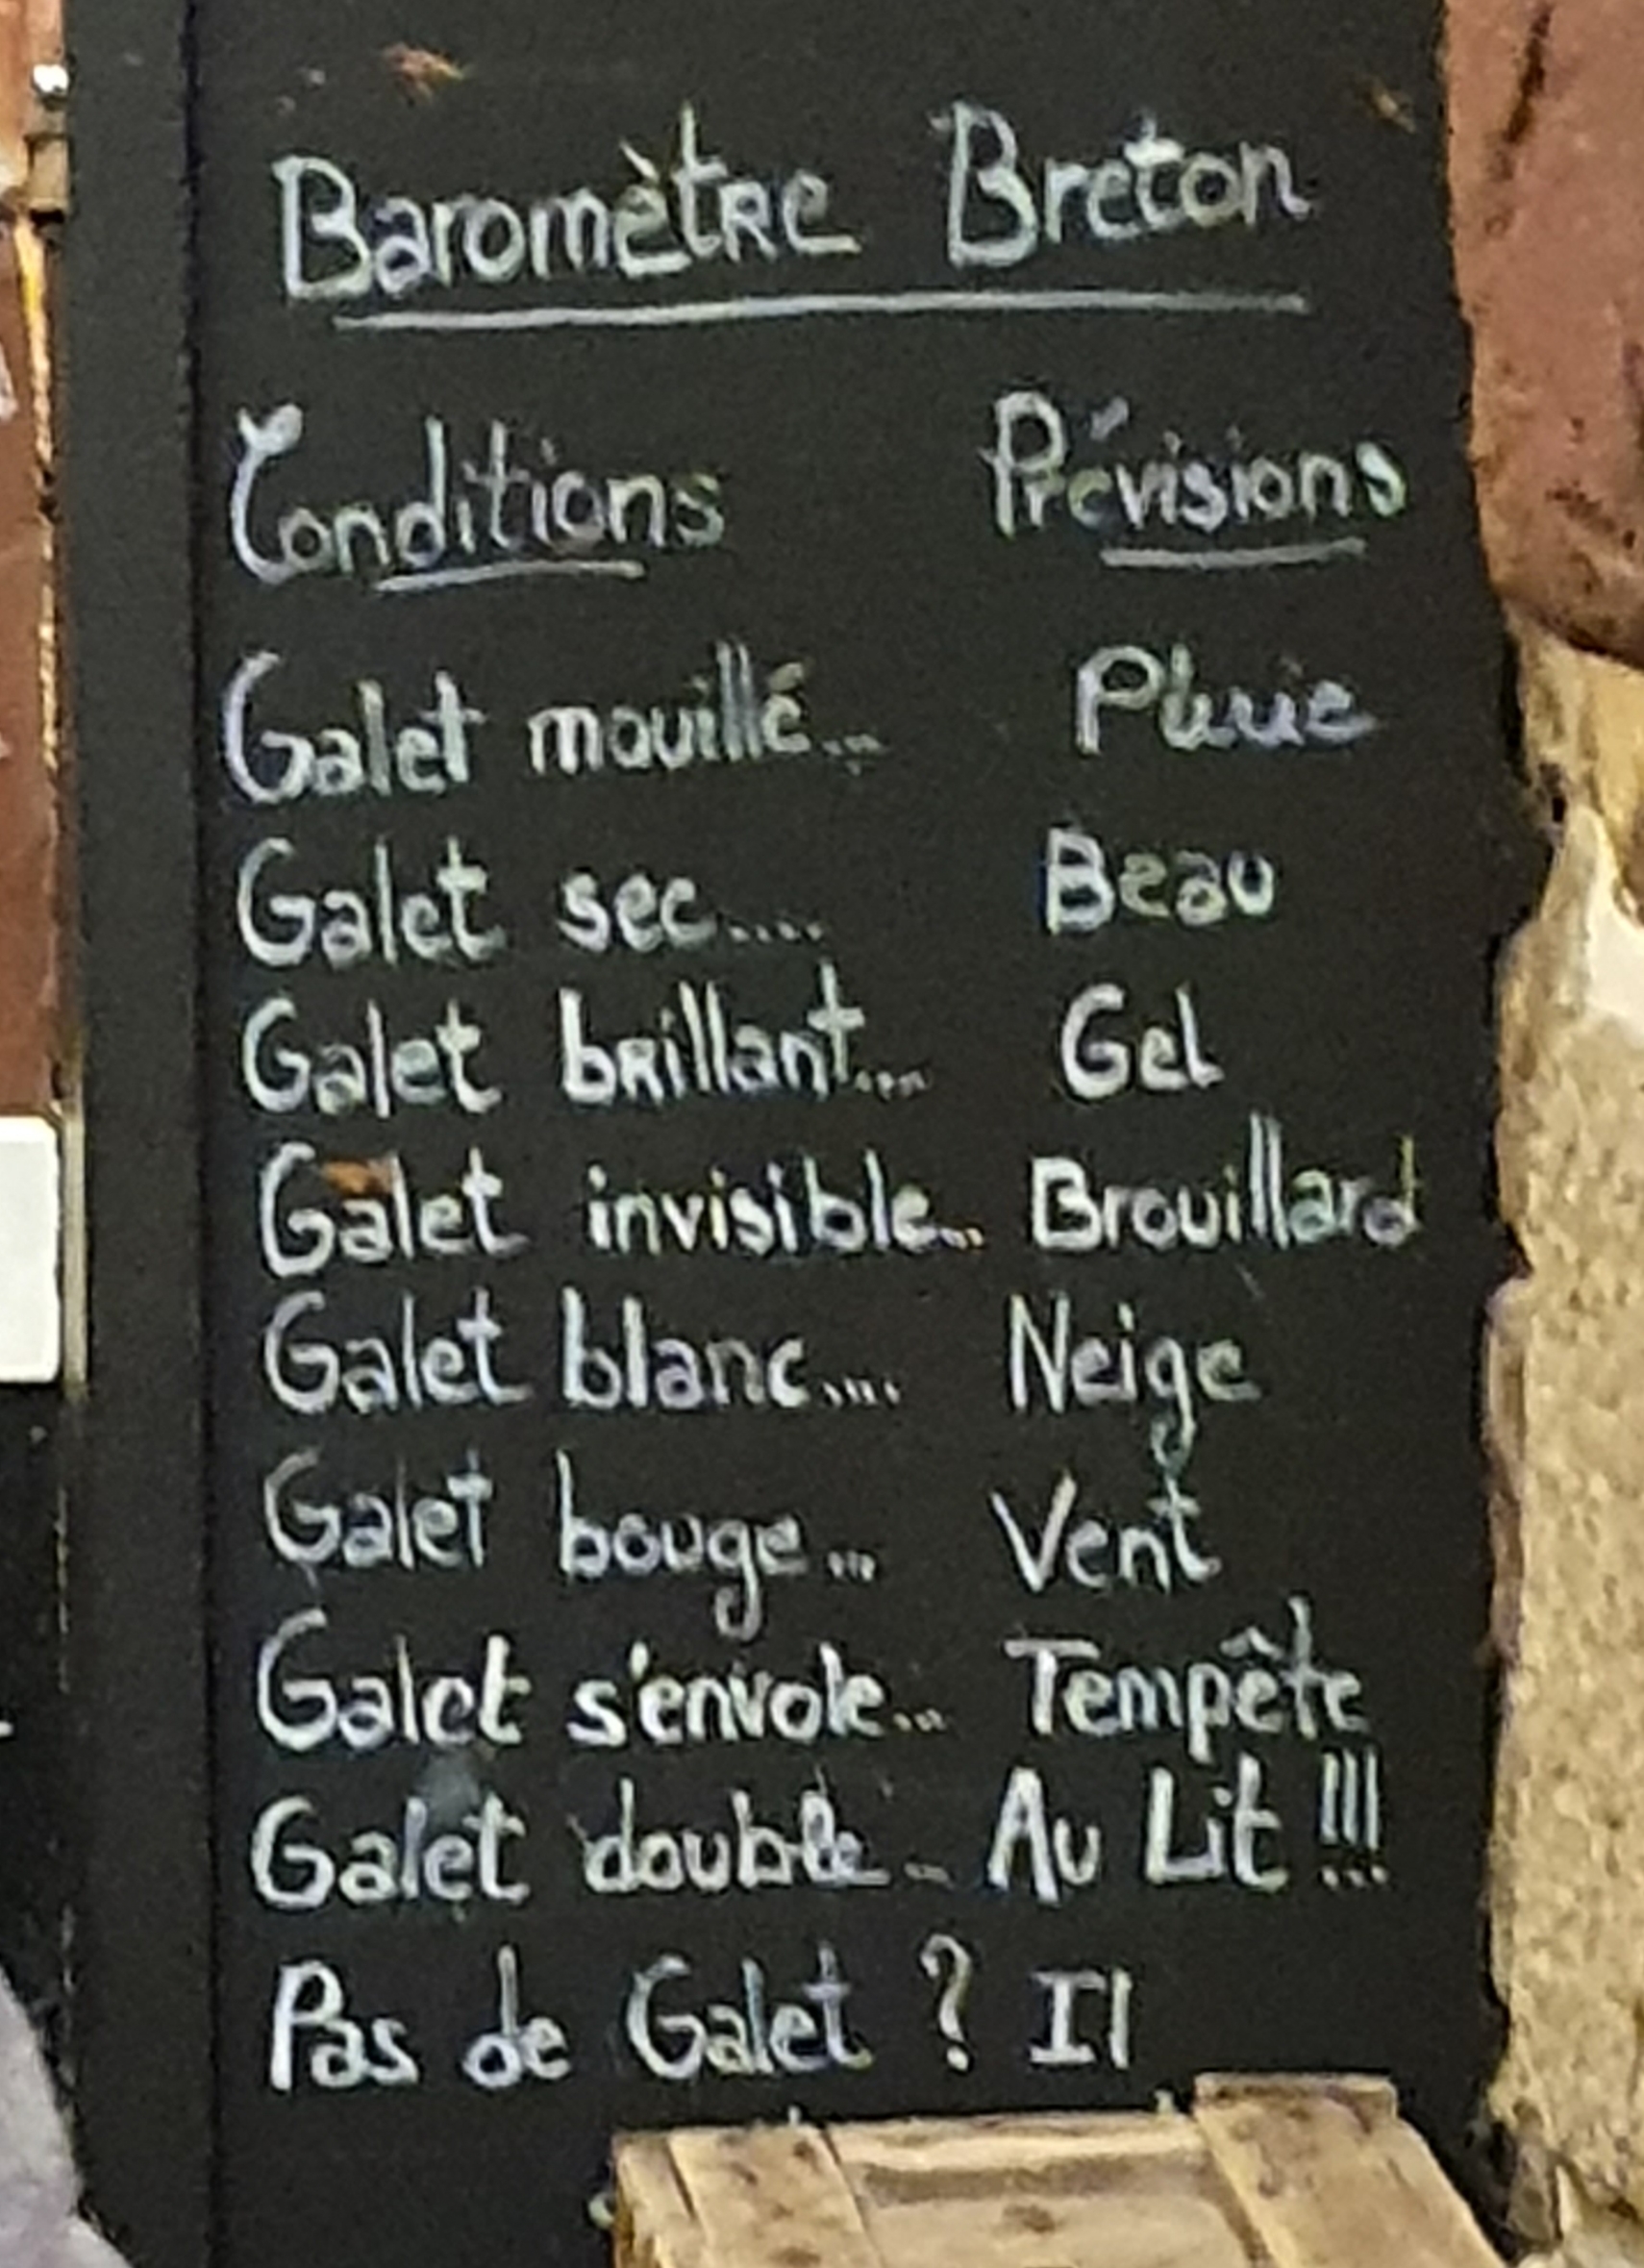 Baromètre Breton
Conditions Prévisions
Galet mouillé... Pluie
Galet sec.... Beau
Galet brillant.... Gel
Galet invisible... Brouillard
Galet blanc.... Neige
Galet bouge... Vent
Galet s'envole... Tempête
Galet double... Au Lit !!!
Pas de Galet ? Il